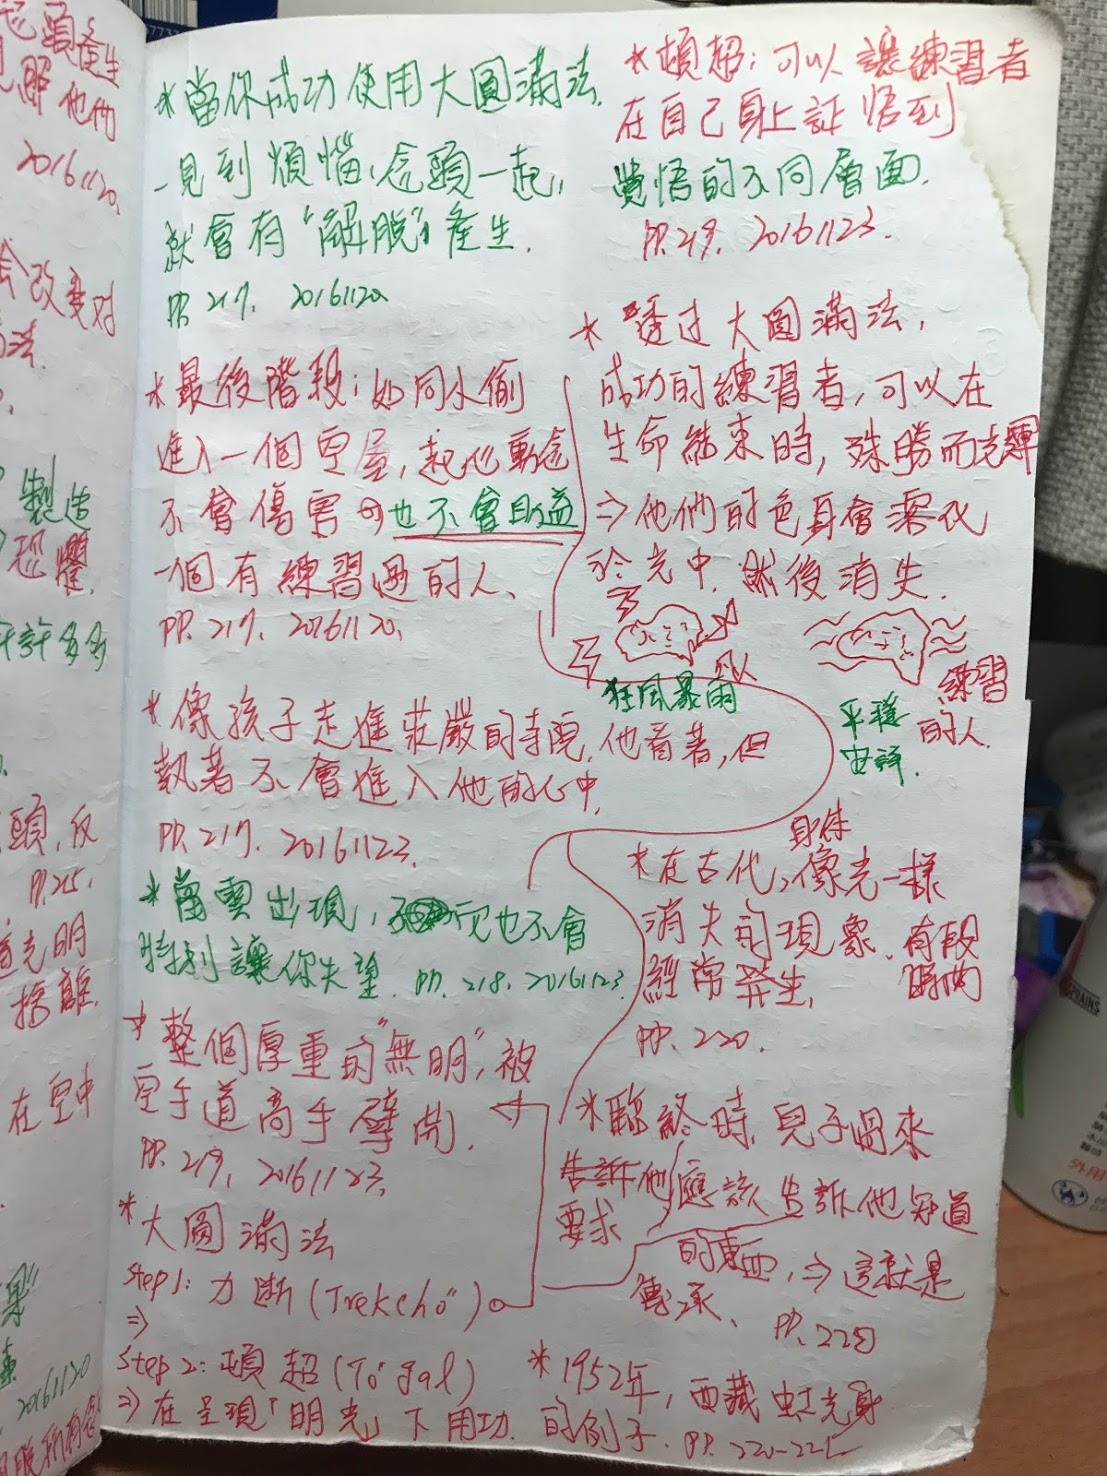 *當你成功使用大圓滿法,
一見到煩惱、念頭一起,
就會有"解脫"產生.
PP. 217. 20161120
*最後階段:如同小偷
進入一個空屋,起心動念
不會傷害 也不會助益
一個有練習過的人、
PP. 217. 20161120.
*像孩子走進莊嚴的寺院.他看著,但
執著不會進入他的心中.
PP. 217. 20161123.
*當雲出現, 也不會
特別讓你失望. PP. 218. 20161123.
*整個厚重的"無明",被
空手道高手劈開.
PP. 219. 20161123.
*大圓滿法
Step 1: 力斷(Trekchö)
⇒
Step 2: 頓超(Tögal)
⇒在呈現「明光」下用功.
*頓超:可以讓練習者
在自己身上証悟到
覺悟的不同層面.
PP. 219. 20161123.
*透过大圓滿法,
成功的練習者,可以在
生命結束時,殊勝而光輝
⇒他們的色身會溶化
於光中.然後消失.
狂風暴雨
的人
平穩
安詳.
練習
的人.
身体
*在古代,像光一樣
消失的現象.有段時間
經常発生.
PP. 220.
*臨終時,兒子過來
告訴他應該告訴他知道
要求
的東西,⇒這就是
傳承. PP. 220
*1952年,西藏虹光身
的例子. PP. 220-221
起頭產生
他們
20161120.
會改變对
法.
製造
恐懼.
許多多
頭,反
P. 215.
光明
在空中
20161120